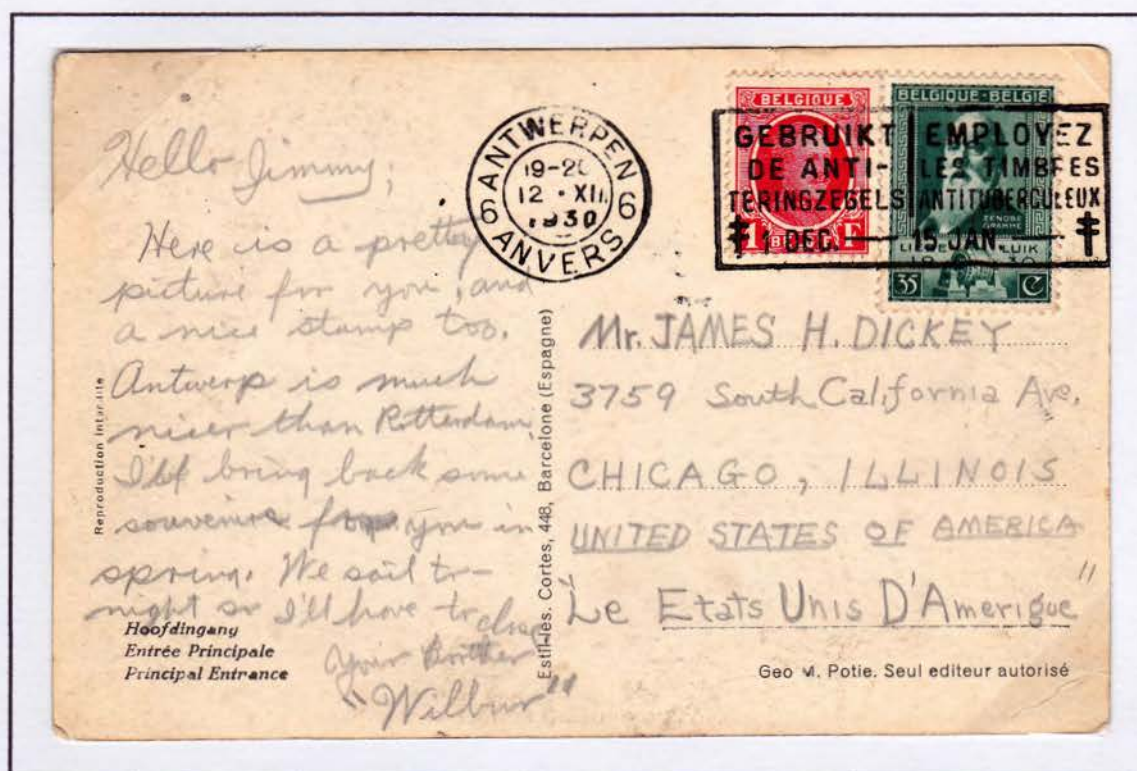 Hello Jimmy,
Here is a pretty
picture for you, and
a nice stamp too.
Antwerp is much
nicer than Rotterdam.
I'll bring back some
souvenirs for you in
spring. We sail to-
night so I'll have to close
Your Brother
"Wilbur"
Hoofdingang
Entrée Principale
Principal Entrance
Reproduction Interdite
Estil-les. Cortes, 448, Barcelone (Espagne)
ANTWERPEN
6 6
19-20
12 · XII
1930
ANVERS
BELGIQUE
1 F
BELGIQUE-BELGIË
ZENOBE
GRAMME
35 C
GEBRUIKT EMPLOYEZ
DE ANTI- LES TIMBRES
TERINGZEGELS ANTITUBERCULEUX
1 DEC. 15 JAN.
Mr. JAMES H. DICKEY
3759 South California Ave.
CHICAGO, ILLINOIS
UNITED STATES OF AMERICA
"Le Etats Unis D'Amerigue"
Geo M. Potie. Seul editeur autorisé